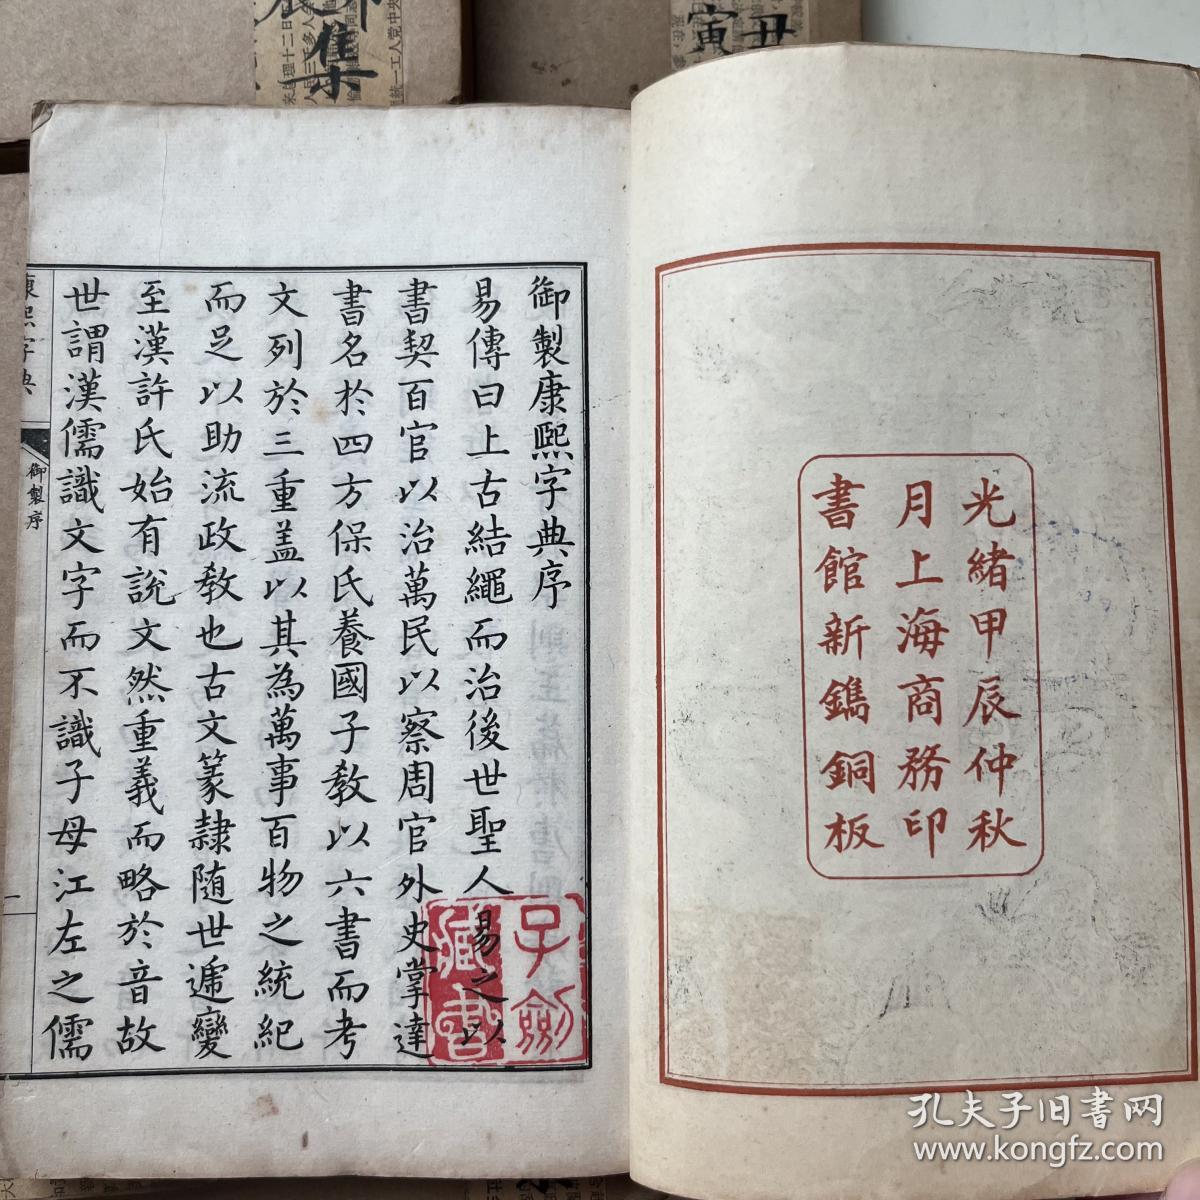 光緒甲辰仲秋
月上海商務印
書館新鐫銅板
御製康熙字典序
易傳曰上古結繩而治後世聖人易之以
書契百官以治萬民以察周官外史掌達
書名於四方保氏養國子教以六書而考
文列於三重盖以其為萬事百物之統紀
而足以助流政教也古文篆隷随世遞變
至漢許氏始有說文然重義而略於音故
世謂漢儒識文字而不識子母江左之儒
康熙字典
御製序
一
子劍
藏書
集
寅
丑
孔夫子旧书网
www.kongfz.com